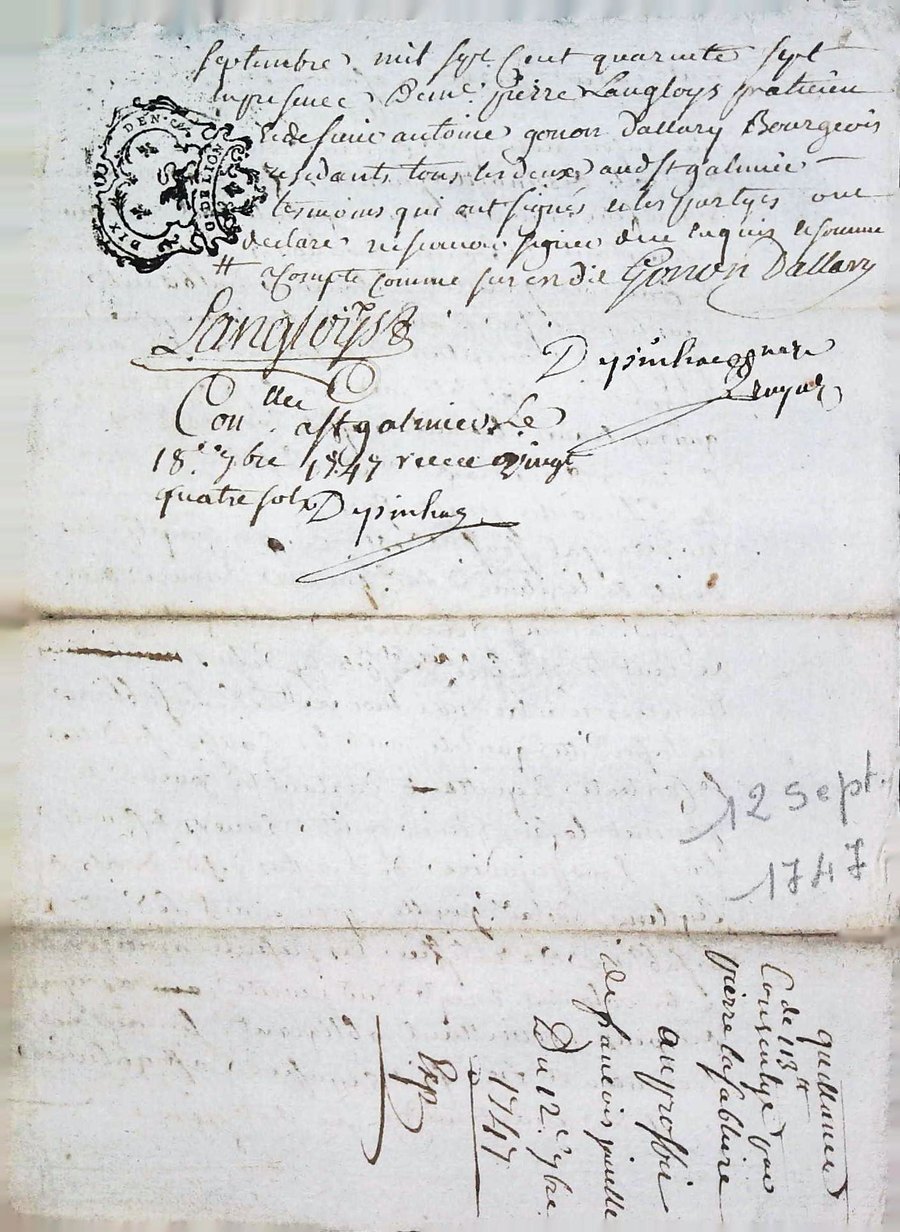 septembre mil sept cent quarente sept
en presence de me. pierre Langloys praticien
et de sieur antoine gonon dallary Bourgeois
residants tous les deux aud st galmier
tesmoins qui ont signés et les partyes ont
declaré ne scavoir signer de ce enquis et somme
# Compte comme sur en die Gonon Dallary
Langloys
Depinhac
Conllé a st galmier Le
18e. 7bre 1747 receu vingt
quatre sols Depinhac
DIX DEN.
G. DE LION
12 Sept.
1747
quittance
de 113tt
Consentye par
pierre lafabliere
au proffit
de francois
Du 12e. 7bre
1747
Exp